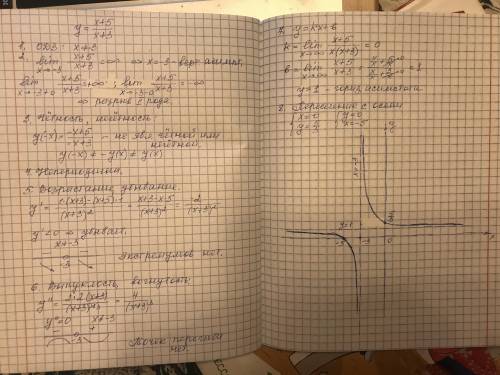 y = x+5/x+3
1. ОДЗ: x≠-3
2. lim x→-3 x+5/x+3 = ∞ ⇒ x=-3 - верт. асимпт.
lim x→-3+0 x+5/x+3 = +∞ ; lim x→-3-0 x+5/x+3 = -∞
⇒ разрыв II рода.
3. Чётность, нечётность.
y(-x) = -x+5/-x+3 - не явл. чётной или
нечётной.
y(-x) ≠ -y(x) ≠ y(x)
4. Непериодичная.
5. Возрастание, убывание.
y' = 1·(x+3)-(x+5)·1/(x+3)² = x+3-x-5/(x+3)² = -2/(x+3)²
y'<0 ⇒ убывает.
x≠-3
- -
-3
Экстремумов нет.
6. Выпуклость, вогнутость.
y'' = 2·2(x+3)/(x+3)⁴ = 4/(x+3)³
y''≠0 x≠-3
- +
-3
Точек перегиба
нет.
7. y = kx+b
k = lim x→∞ x+5/x(x+3) = 0
b = lim x→∞ x+5/x+3 = 1
y=1 - гориз. асимптота
8. Пересечение с осями
x=0 y=0
y=5/3 x=-5
y
x=-3
y=1
-5 -3 0
x